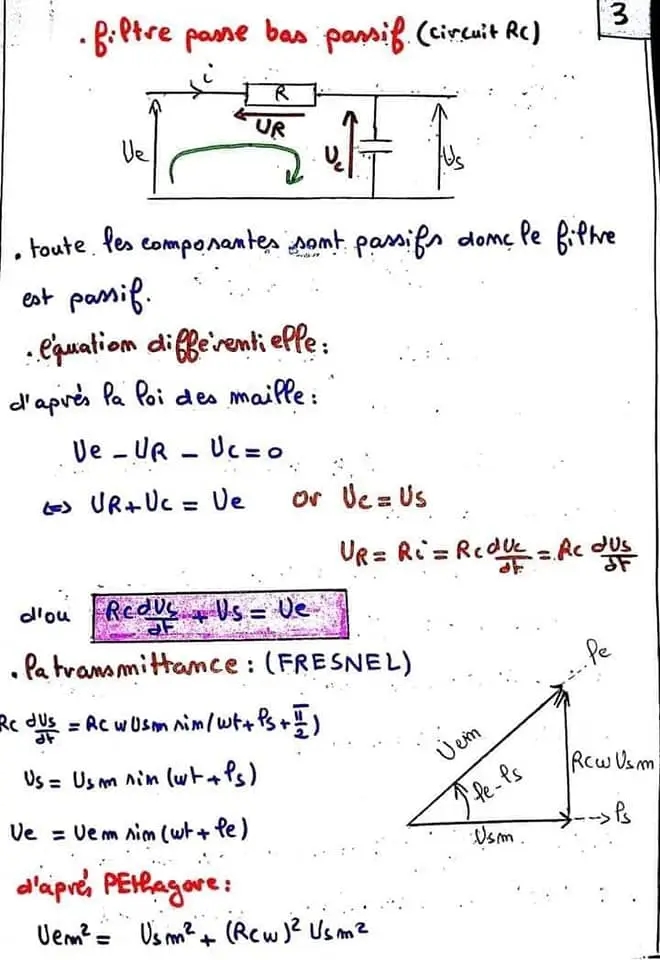 3
. filtre passe bas passif (circuit Rc)
i
R
UR
Ue
Uc
Us
. toute les composantes sont passifs donc le filtre
est passif.
. l'équation différentielle :
d'aprés la loi des maille :
Ue - UR - Uc = 0
⇔ UR + Uc = Ue or Uc = Us
UR = Ri = Rc dUc/dt = Rc dUs/dt
d'ou Rc dUs/dt + Us = Ue
. la transmittance : (FRESNEL)
Rc dUs/dt = Rc w Usm sin(wt + φs + π/2)
Us = Usm sin(wt + φs)
Ue = Uem sin(wt + φe)
φe
Uem
RcwUsm
φe-φs
φs
Usm
d'aprés PEthagore :
Uem² = Usm² + (Rcw)² Usm²